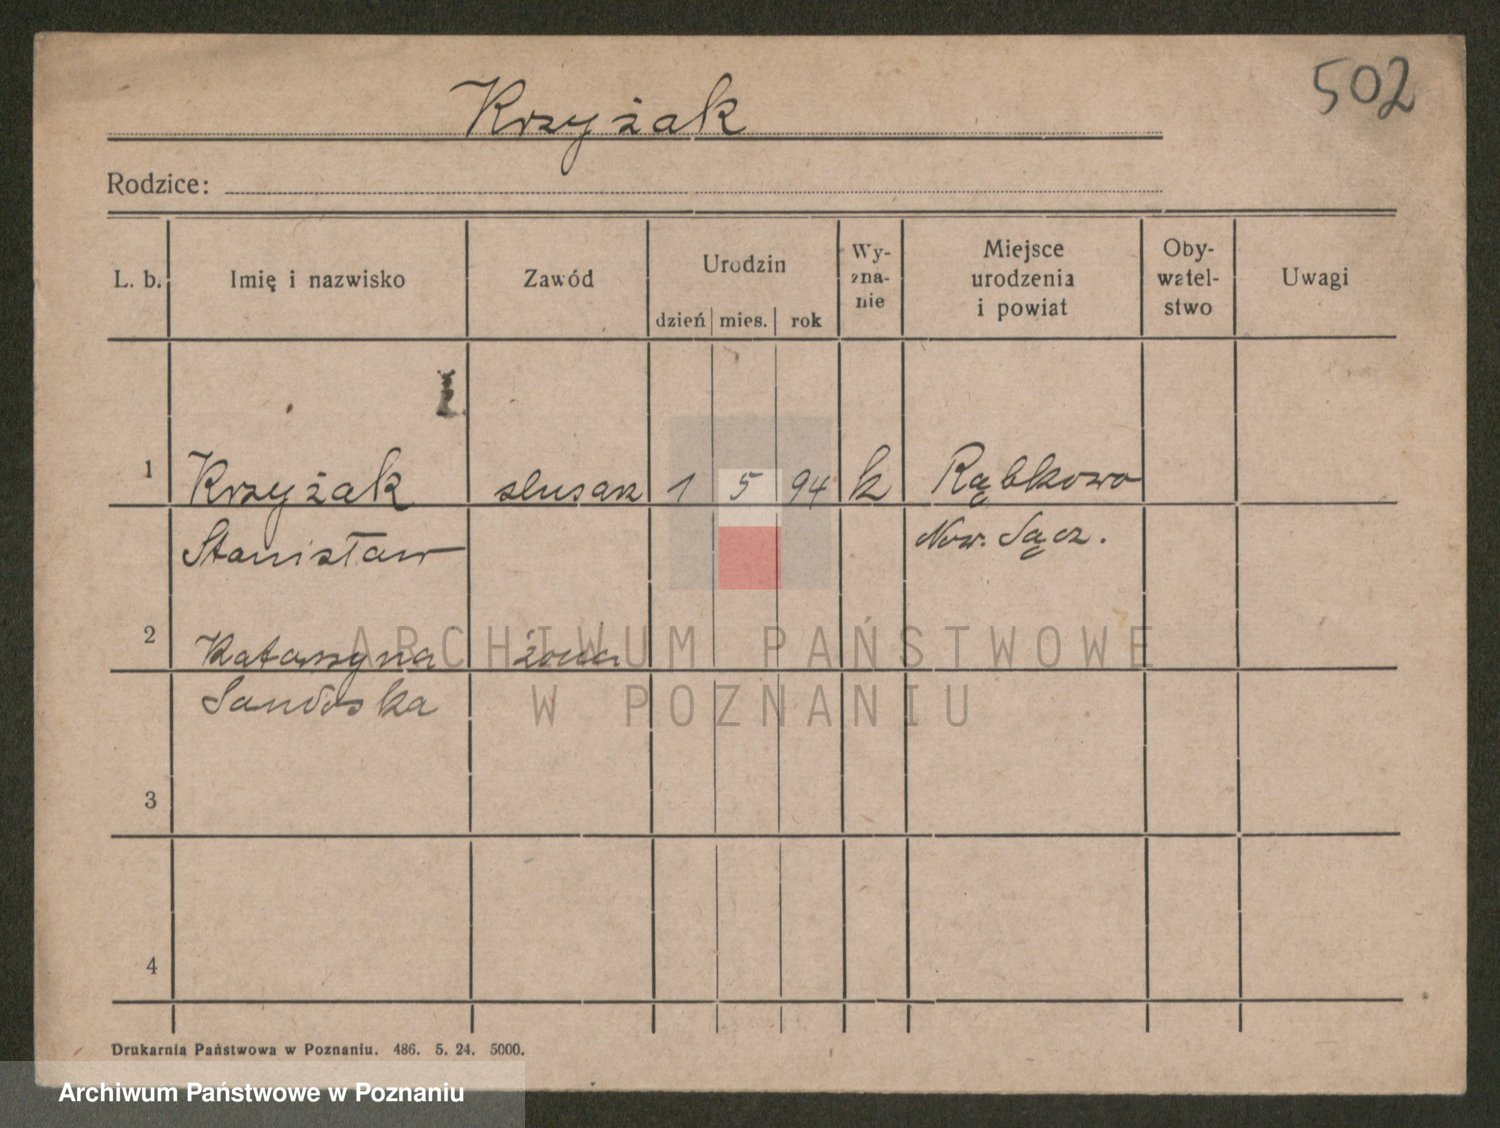 502
Krzyżak
Rodzice:
L. b.
Imię i nazwisko
Zawód
Urodzin
dzień mies. rok
Wy-
zna-
nie
Miejsce
urodzenia
i powiat
Oby-
watel-
stwo
Uwagi
1 Krzyżak slusarz 1 5 94 k Rąbkowo
Stanisław Now. Sącz.
2 Katarzyna żona
Sandoska
3
4
Drukarnia Państwowa w Poznaniu. 486. 5. 24. 5000.
ARCHIWUM PAŃSTWOWE
W POZNANIU
Archiwum Państwowe w Poznaniu